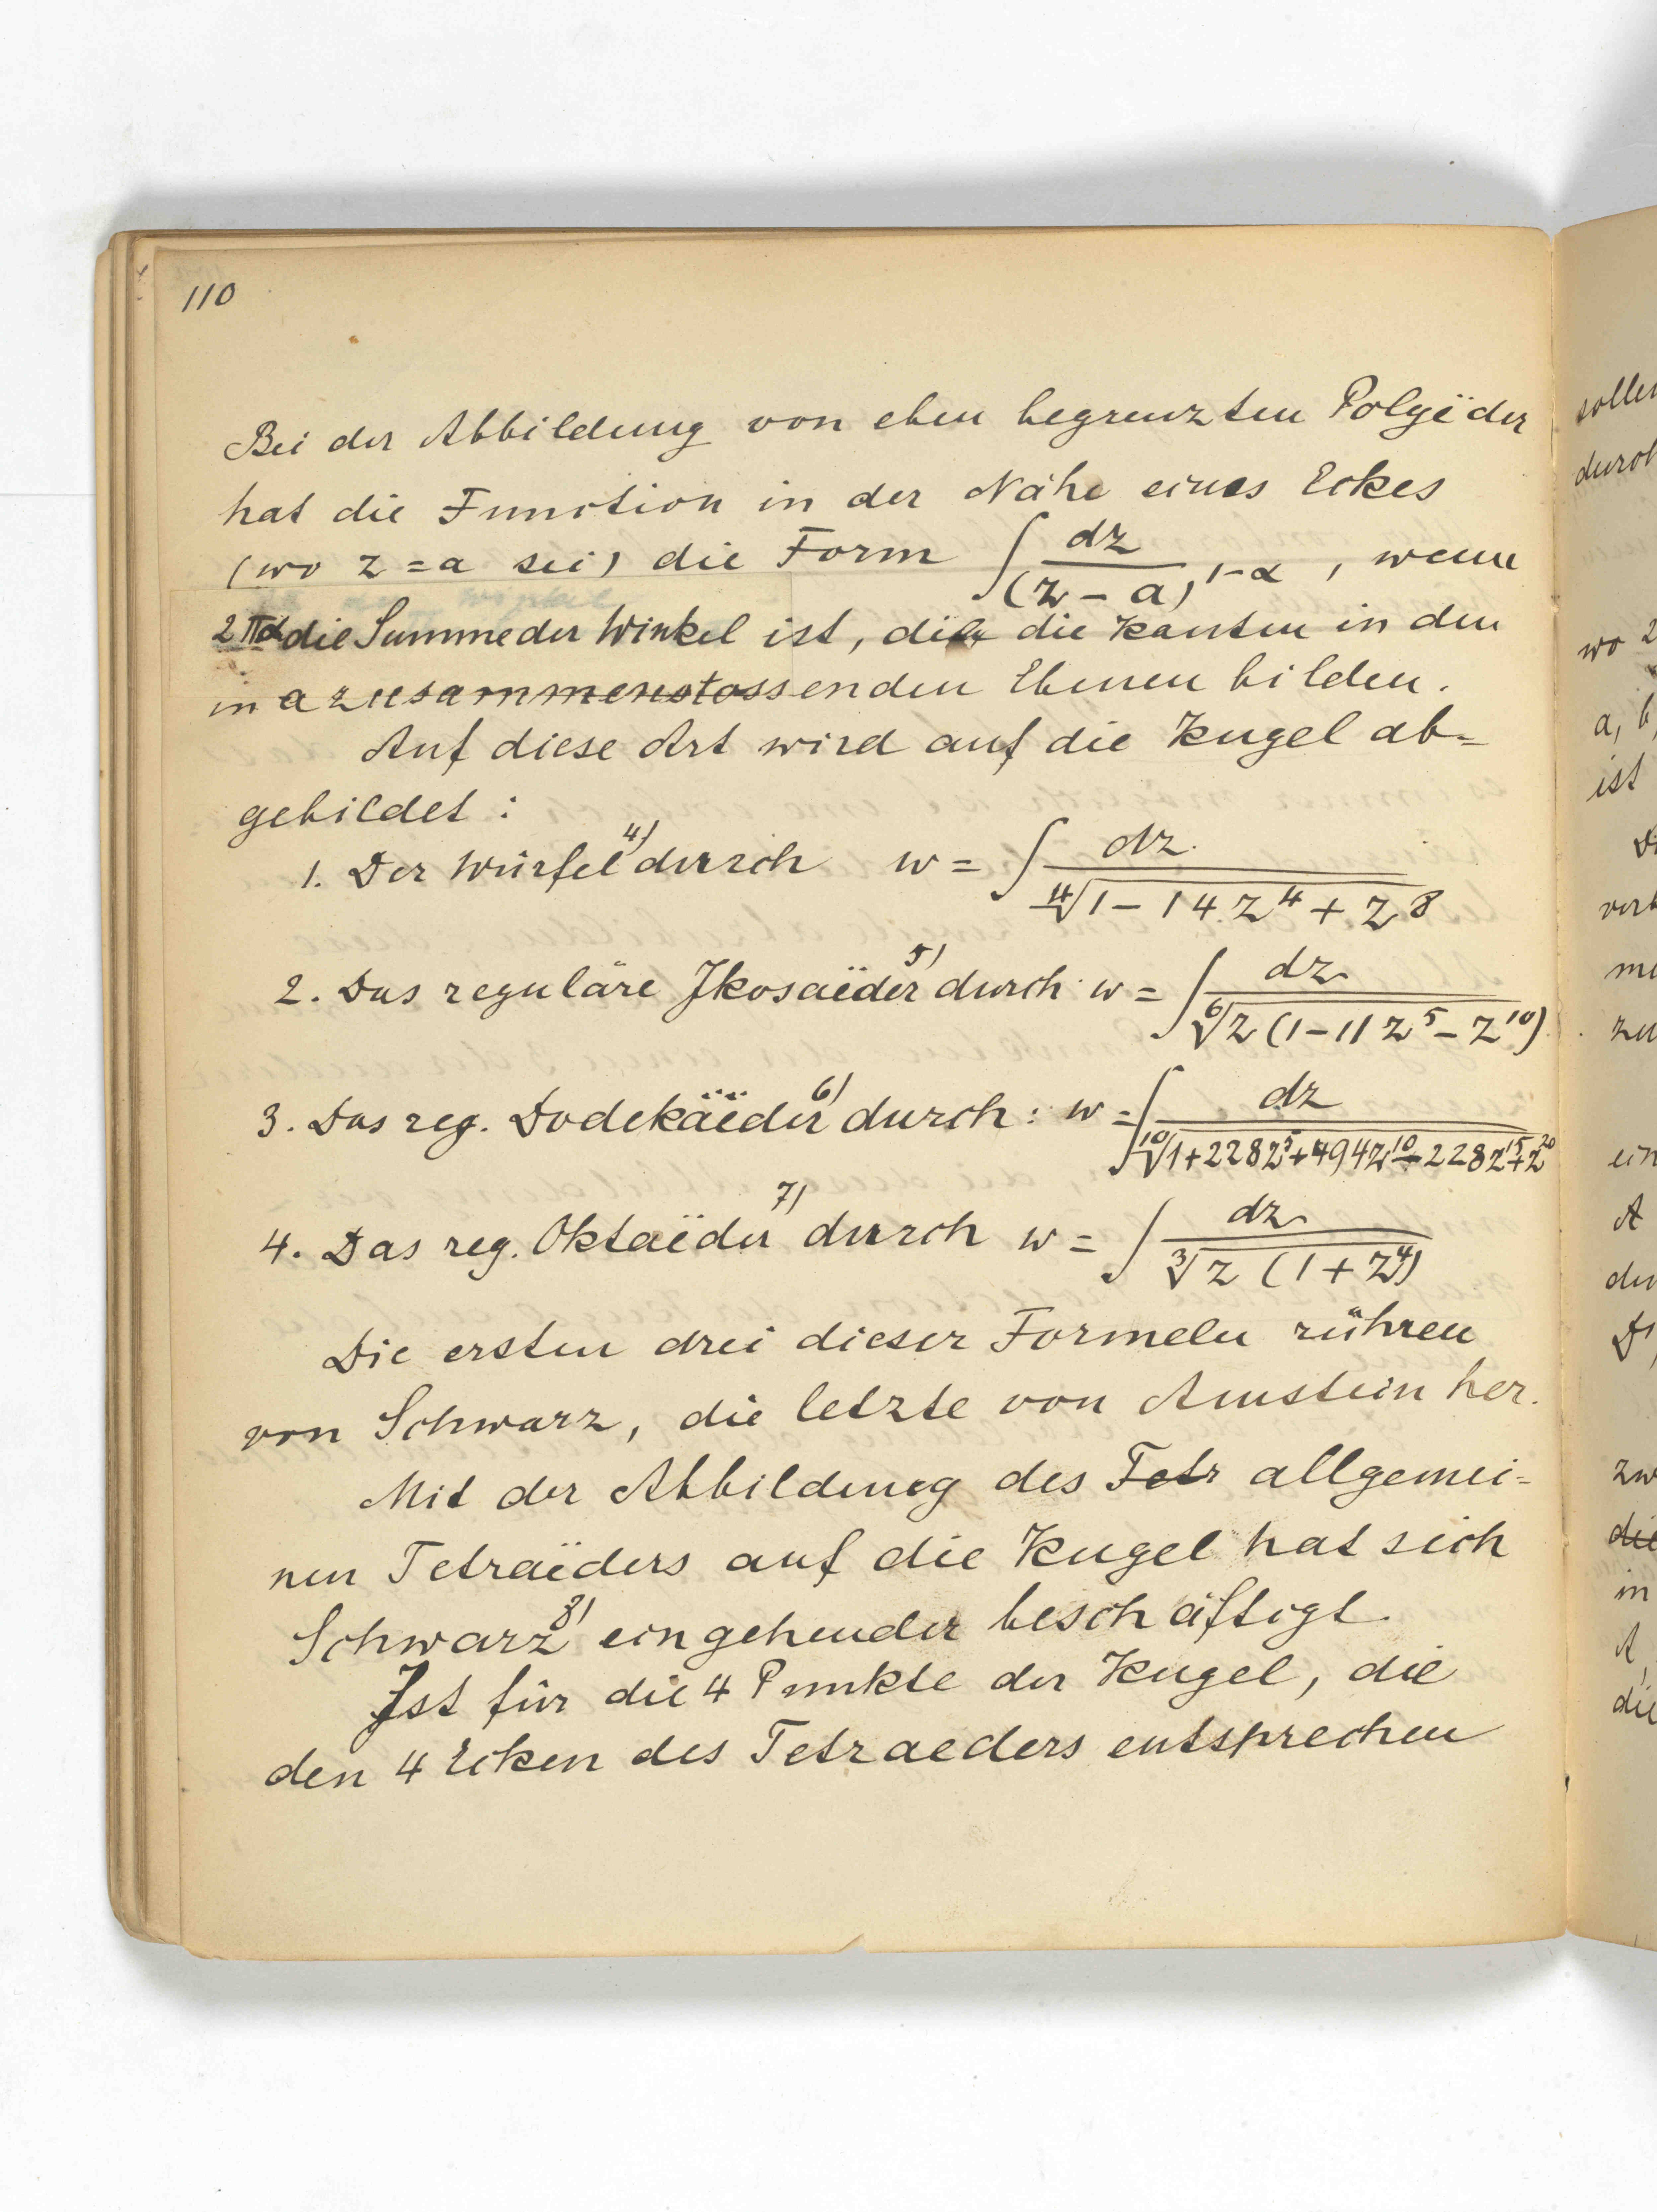 110
Bei der Abbildung von eben begrenzten Polyëder
hat die Function in der Nähe eines Eckes
(wo z = a sei) die Form ∫ dz / (z − a)^{1−α} , wenn
2πα die Summe der Winkel ist, die die Kanten in den
in a zusammenstossenden Ebenen bilden.
Auf diese Art wird auf die Kugel ab=
gebildet :
1. Der Würfel 4) durch w = ∫ dz / ∜(1 − 14 z^4 + z^8)
2. Das reguläre Jkosaëder 5) durch w = ∫ dz / ⁶√(z (1 − 11 z^5 − z^10))
3. Das reg. Dodekäëder 6) durch : w = ∫ dz / ¹⁰√(1 + 228z^5 + 494z^10 − 228z^15 + z^20)
4. Das reg. Oktaëder 7) durch w = ∫ dz / ∛(z (1 + z^4))
Die ersten drei dieser Formeln rühren
von Schwarz, die letzte von Amstein her.
Mit der Abbildung des Tetr allgemei=
nen Tetraëders auf die Kugel hat sich
Schwarz 8) eingehender beschäftigt.
Jst für die 4 Punkte der Kugel, die
den 4 Ecken des Tetraeders entsprechen
sollen
durch
wo 2
a, b,
ist
verb
zu
ein
A
zw
die
in
A
die